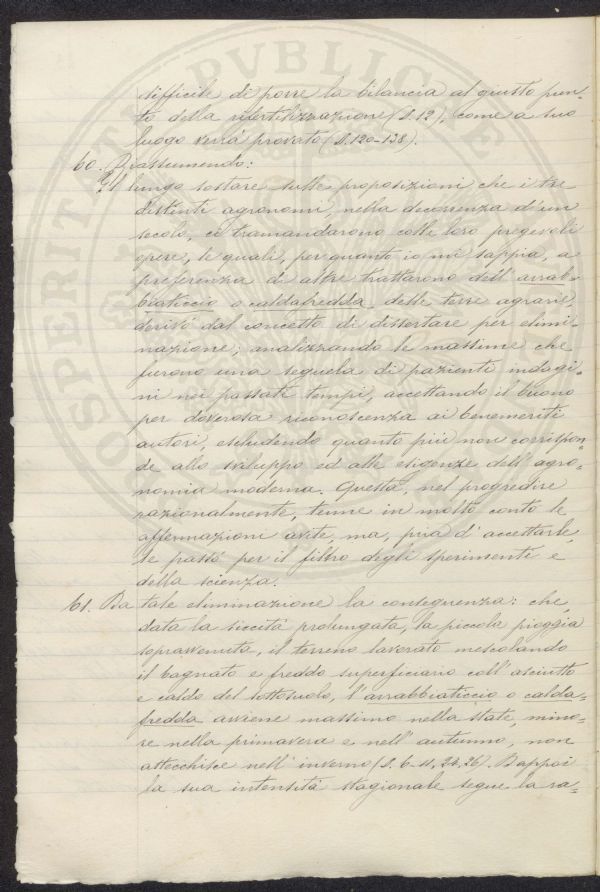 difficile di porre la bilancia al giusto pun-
to della rifertilizzazione (§.12), come a suo
luogo verrà provato (§.120-138).
60. Riassumendo:
Il lungo sostare sulle proposizioni che i tre
distinti agronomi, nella decorrenza d'un
secolo, ci tramandarono colle loro pregevoli
opere, le quali, per quanto io mi sappia, a
preferenza di altre trattarono dell'arrab-
biaticcio o caldafredda delle terre agrarie,
derivò dal concetto di dissertare per elimi-
nazione; analizzando le massime che
furono una seguela di pazienti indagi-
ni nei passati tempi, accettando il buono
per doverosa riconoscenza ai benemeriti
autori, escludendo quanto più non corrispon-
de allo sviluppo ed alle esigenze dell'agro-
nomia moderna. Questa, nel progredire
razionalmente, tenne in molto conto le
affermazioni avite, ma, pria d'accettarle,
le passò per il filtro degli sperimenti e
della scienza.
61. Da tale eliminazione la conseguenza: che,
data la siccità prolungata, la piccola pioggia
sopravvenuta, il terreno lavorato mescolando
il bagnato e freddo superficiario coll'asciutto
e caldo del sottosuolo, l'arrabbiaticcio o calda-
fredda avviene massimo nella state, mino-
re nella primavera e nell'autunno, non
attecchisce nell'inverno (§. 6-11, 24, 26). Dappoi
la sua intensità stagionale segue la ra-
PROSPERITATI PVBLICAE